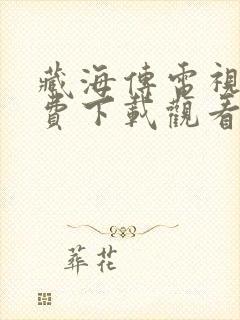 藏海傳電視
費下載觀看
葬花